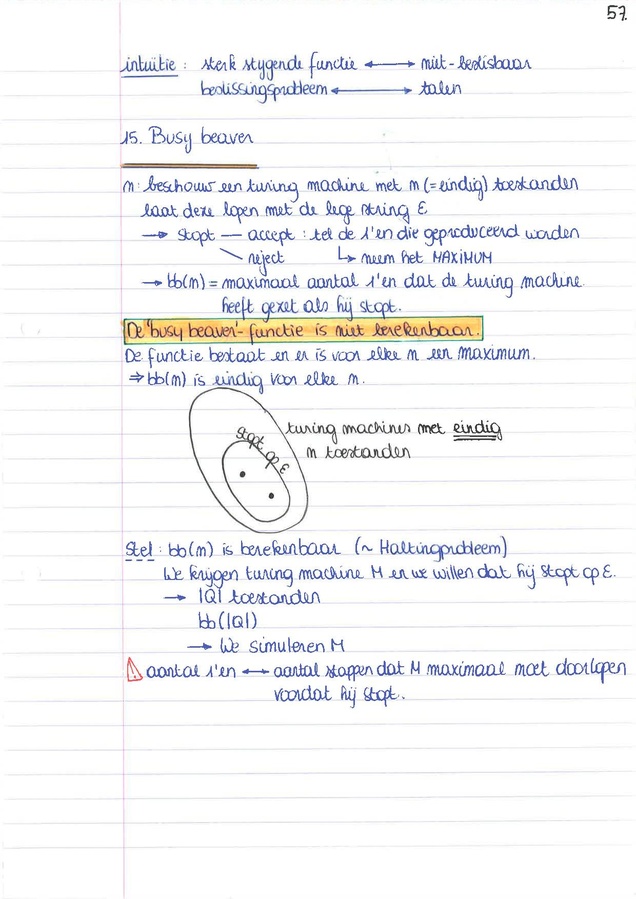 57.
intuïtie : sterk stygende functie ⟷ niet-beslisbaar
beslissingsprobleem ⟷ talen
15. Busy beaver
n: beschouw een turing machine met n (= eindig) toestanden
laat deze lopen met de lege string ε
→ stopt — accept : tel de 1'en die geproduceerd worden
\ reject ↳ neem het MAXIMUM
→ bb(n) = maximaal aantal 1'en dat de turing machine
heeft gezet als hij stopt.
De "busy beaver"- functie is niet berekenbaar.
De functie bestaat en er is voor elke n een maximum.
⇒ bb(n) is eindig voor elke n.
stopt op ε
turing machines met eindig
n toestanden
Stel : bb(n) is berekenbaar (~ Haltingprobleem)
We krijgen turing machine M en we willen dat hij stopt op ε.
→ |Q| toestanden
bb(|Q|)
→ We simuleren M
⚠ aantal 1'en ⟷ aantal stappen dat M maximaal moet doorlopen
voordat hij stopt.